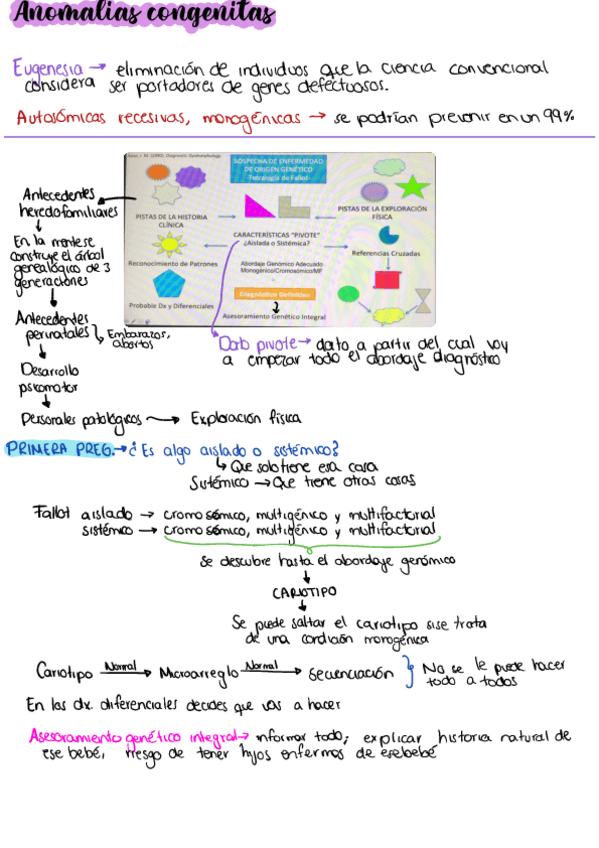 Anomalias congenitas
Eugenesia → eliminación de individuos que la ciencia convencional
considera ser portadores de genes defectuosos.
Autosómicas recesivas, monogénicas → se podrían prevenir en un 99%
SOSPECHA DE ENFERMEDAD
DE ORIGEN GENÉTICO
-Tetralogía de Fallot-
PISTAS DE LA HISTORIA
CLÍNICA
PISTAS DE LA EXPLORACIÓN
FÍSICA
CARACTERÍSTICAS "PIVOTE"
¿Aislada o Sistémica?
Reconocimiento de Patrones
Abordaje Genómico Adecuado
Monogénico/Cromosómico/MF
Referencias Cruzadas
Diagnóstico Definitivo
Probable Dx y Diferenciales
Asesoramiento Genético Integral
Antecedentes
heredofamiliares
↓
En la mente se
construye el árbol
genealógico de 3
generaciones
↓
Antecedentes
perinatales
Embarazos,
abortos
↓
Desarrollo
psicomotor
↓
Personales patológicos → Exploración física
Dato pivote → dato a partir del cual voy
a empezar todo el abordaje diagnóstico
PRIMERA PREG. → ¿Es algo aislado o sistémico?
↳ Que solo tiene esa cosa
Sistémico → Que tiene otras cosas
Fallot aislado → cromosómico, multigénico y multifactorial
sistémico → cromosómico, multigénico y multifactorial
Se descubre hasta el abordaje genómico
↓
CARIOTIPO
↓
Se puede saltar el cariotipo si se trata
de una condición monogénica
Cariotipo Normal → Microarreglo Normal → Secuenciación } No se le puede hacer
todo a todos
En los dx. diferenciales decides que vas a hacer
Asesoramiento genético integral → informar todo; explicar historia natural de
ese bebé, riesgo de tener hijos enfermos de ese bebé